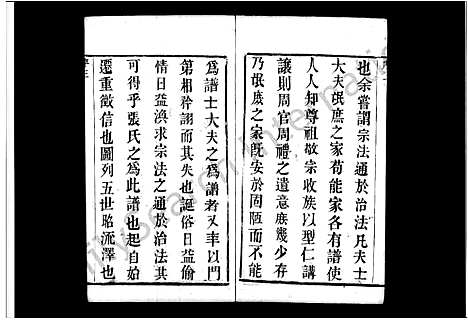 也余嘗謂宗法通於治法凡夫士
大夫氓庶之家苟能家各有譜使
人人知尊祖敬宗收族以型仁講
讓則周官周禮之遺意庶幾少存
乃氓庶之家既安於固陋而不能
為譜士大夫之為譜者又率以門
第相矜詡而其失也誕俗日益偷
情日益渙求宗法之通於治法其
可得乎張氏之為此譜也起自始
遷重徵信也圖列五世昭流澤也